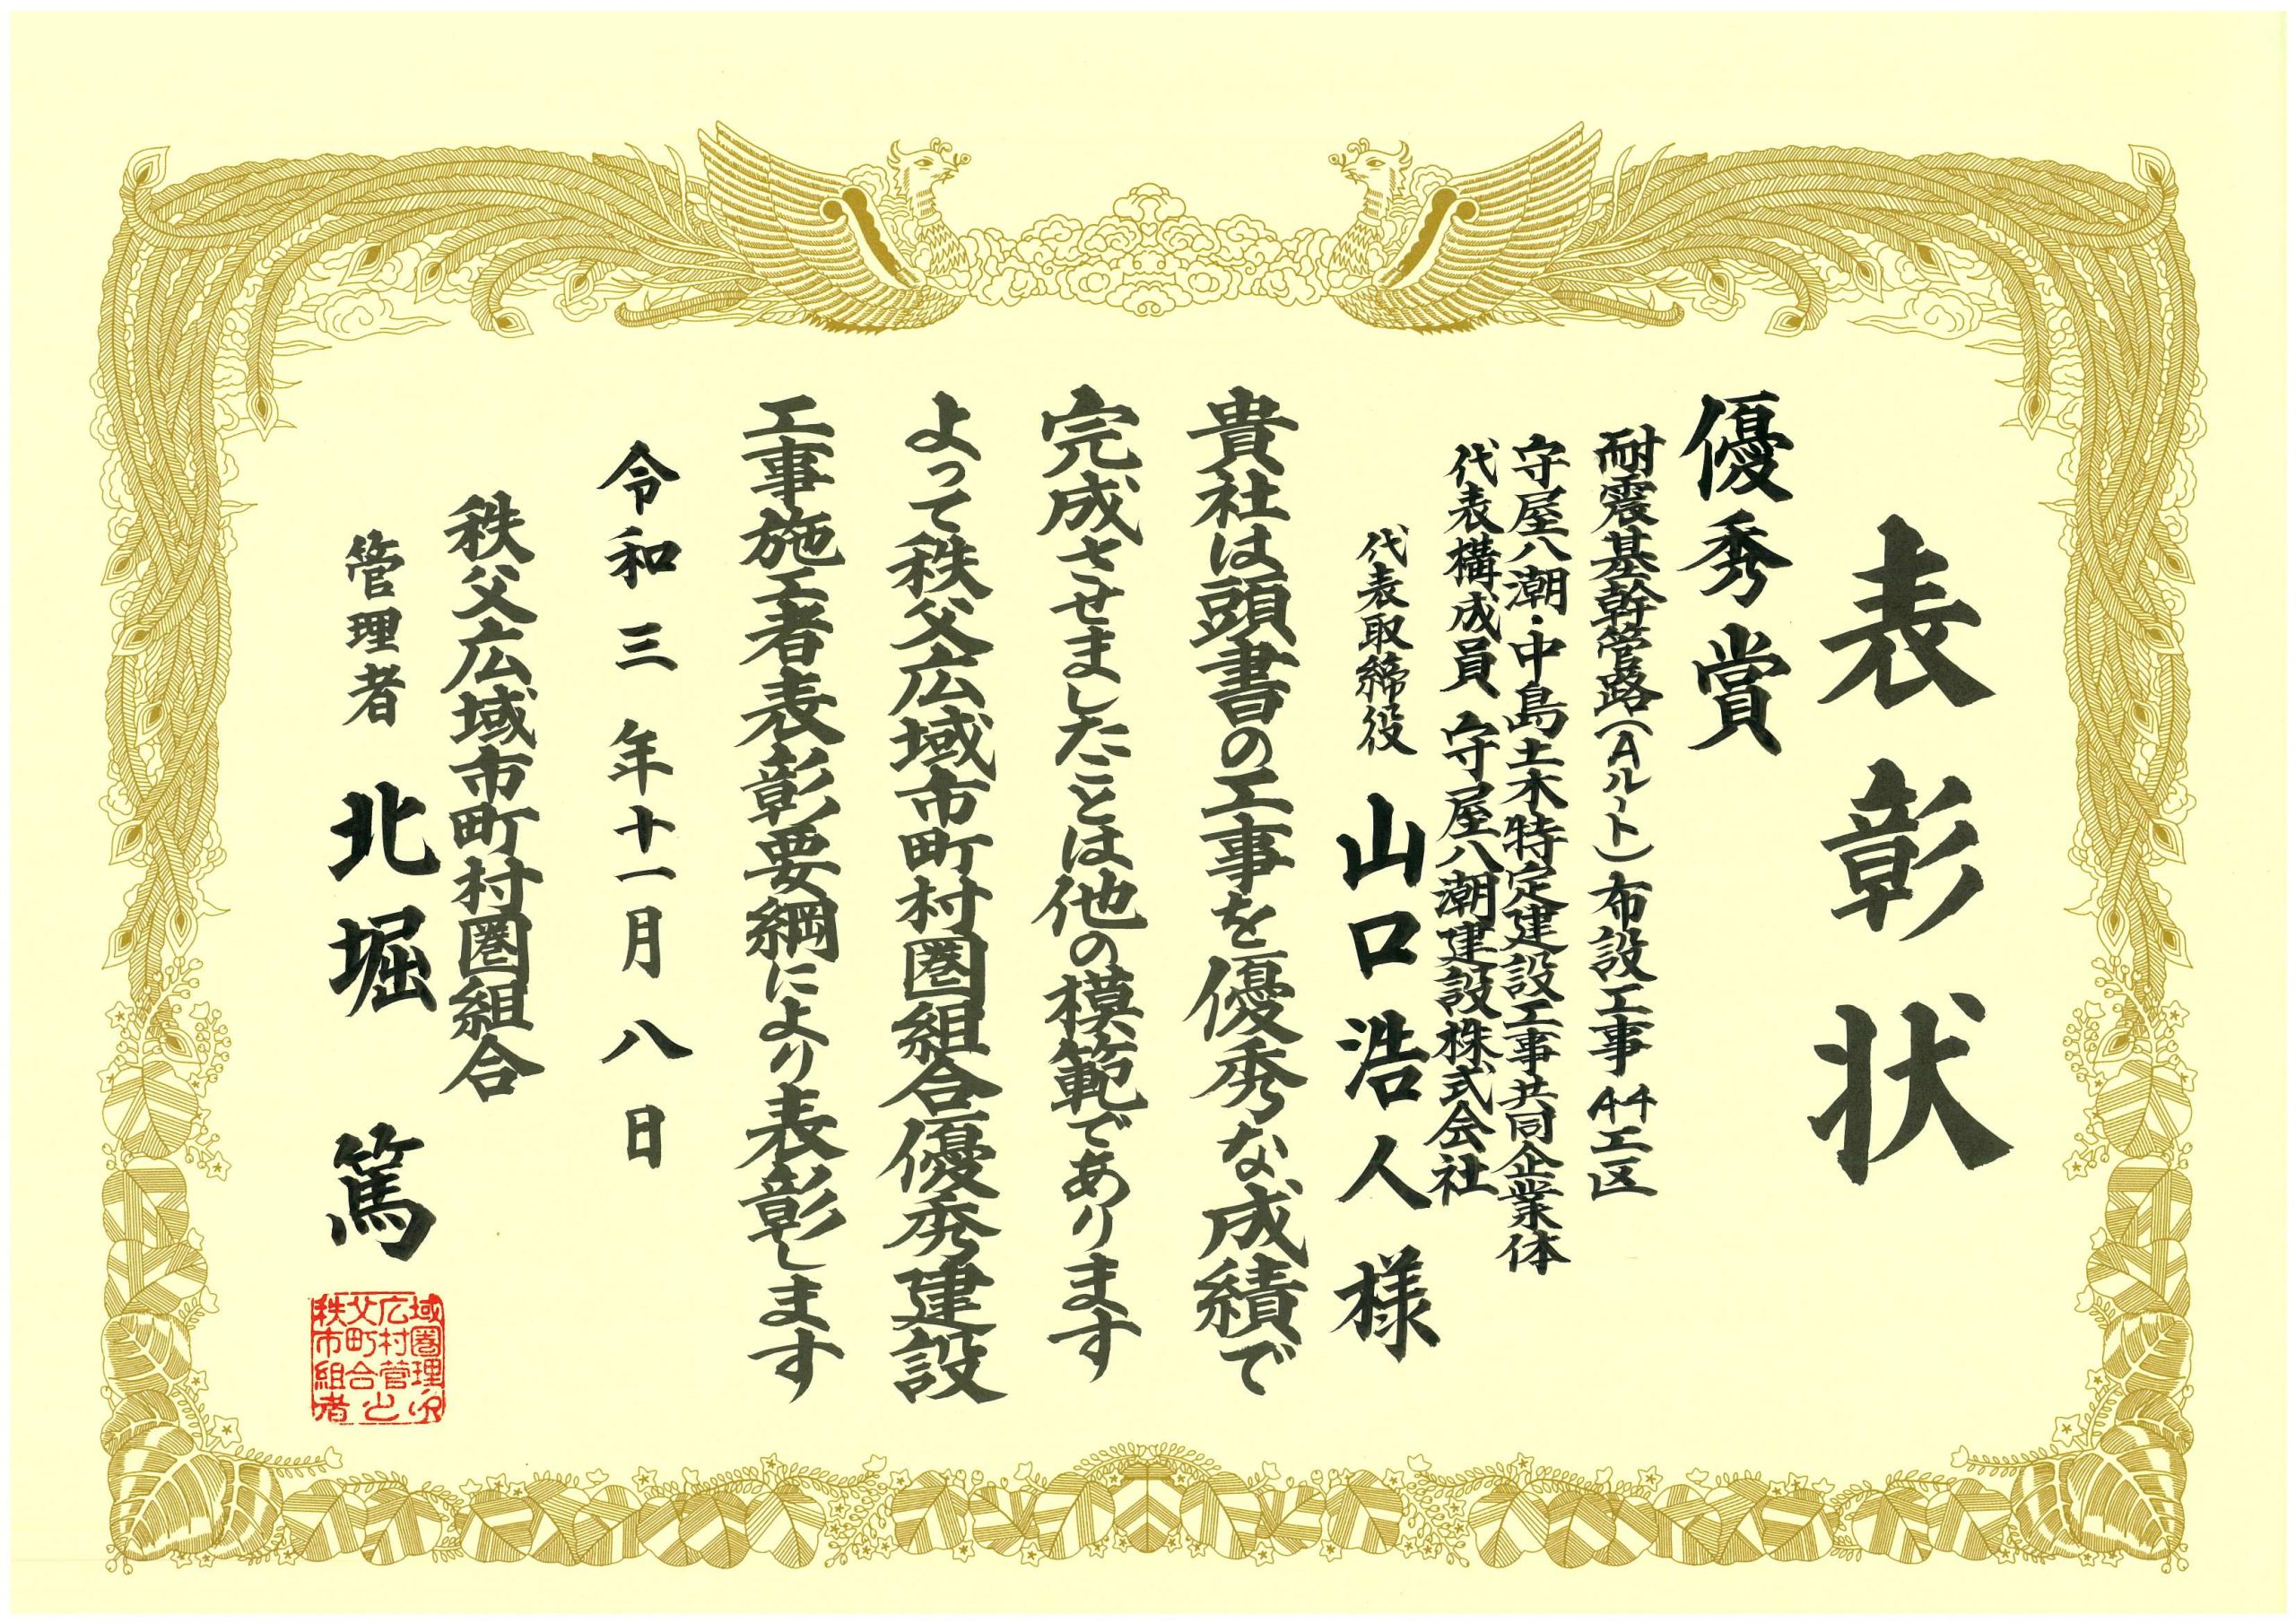 表彰状
優秀賞
耐震基幹管路(Aルート)布設工事A4工区
守屋八潮・中島土木特定建設工事共同企業体
代表構成員 守屋八潮建設株式会社
代表取締役 山口浩人様
貴社は頭書の工事を優秀な成績で
完成させましたことは他の模範であります
よって秩父広域市町村圏組合優秀建設
工事施工者表彰要綱により表彰します
令和三年十一月八日
秩父広域市町村圏組合
管理者 北堀 篤
秩父広域
市町村圏
組合管理
者之印